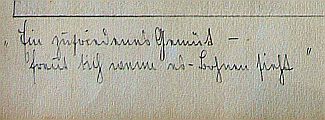 „Ein zufriedenes Gemüt –
freut sich wenn es - Bohnen sieht"